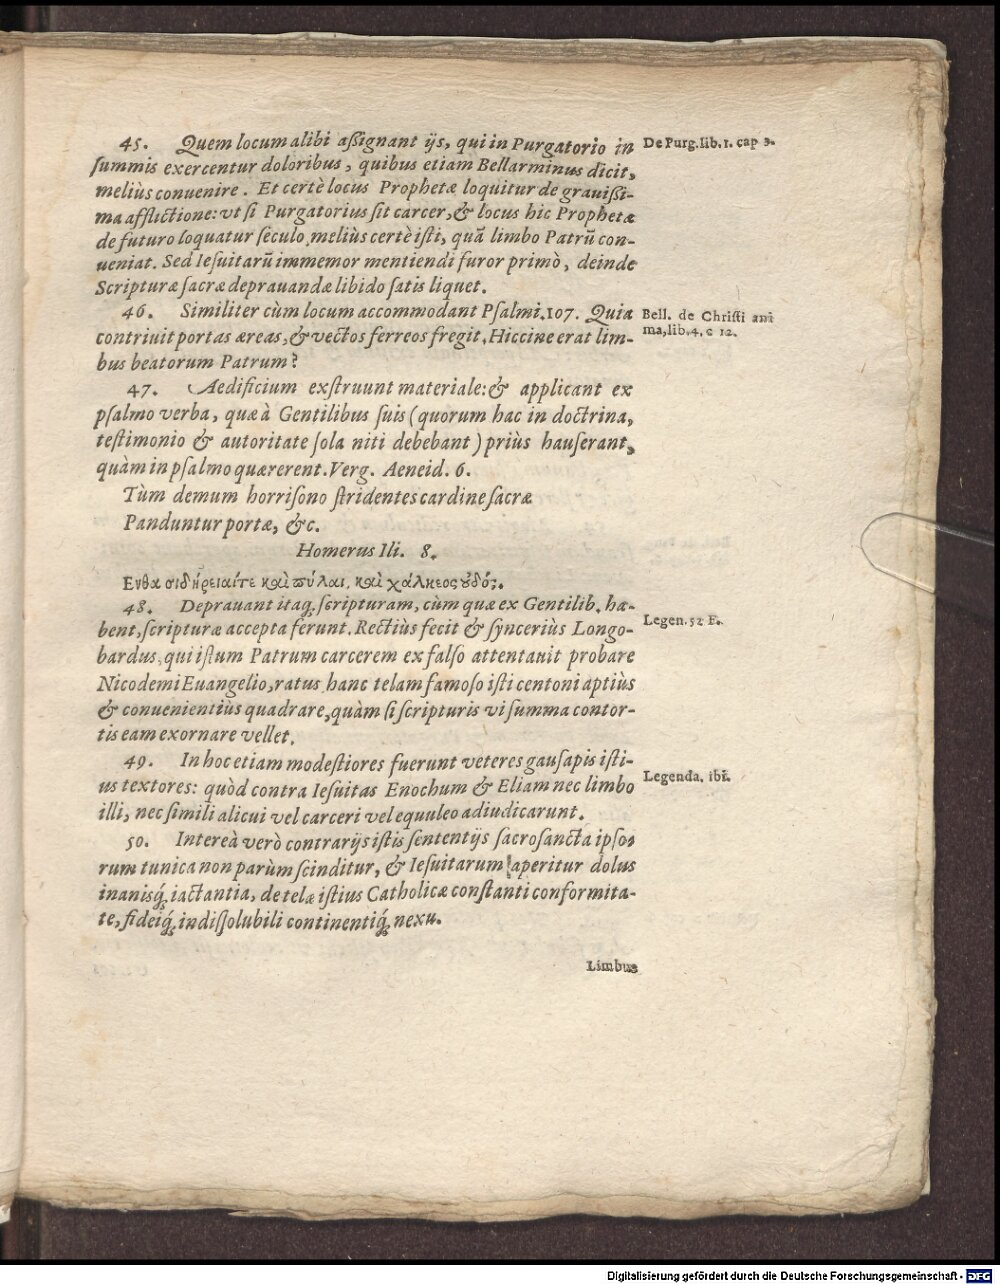 45. Quem locum alibi aßignant ijs, qui in Purgatorio in
ſummis exercentur doloribus, quibus etiam Bellarminus dicit,
meliùs conuenire. Et certè locus Prophetæ loquitur de grauißi-
ma afflictione: vt ſi Purgatorius ſit carcer, & locus hic Prophetæ
de futuro loquatur ſeculo, meliùs certè iſti, quã limbo Patrũ con-
ueniat. Sed Ieſuitarũ immemor mentiendi furor primò, deinde
Scripturæ ſacræ deprauandæ libido ſatis liquet.
De Purg. lib. 1. cap 3.
46. Similiter cùm locum accommodant Pſalmi. 107. Quia
contriuit portas æreas, & vectos ferreos fregit. Hiccine erat lim-
bus beatorum Patrum?
Bell. de Chriſti ani
ma, lib. 4. c 12.
47. Aedificium exſtruunt materiale: & applicant ex
pſalmo verba, quæ à Gentilibus ſuis (quorum hac in doctrina,
teſtimonio & autoritate ſola niti debebant) priùs hauſerant,
quàm in pſalmo quærerent. Verg. Aeneid. 6.
Tùm demum horriſono ſtridentes cardine ſacræ
Panduntur portæ, &c.
Homerus Ili. 8.
Ενθα σιδήρειαίτε καὶ πύλαι, καὶ χάλκεος οὐδός.
48. Deprauant itaq; ſcripturam, cùm quæ ex Gentilib. ha-
bent, ſcripturæ accepta ferunt. Rectiùs fecit & ſynceriùs Longo-
bardus, qui iſtum Patrum carcerem ex falſo attentauit probare
Nicodemi Euangelio, ratus hanc telam famoſo iſti centoni aptiùs
& conuenientiùs quadrare, quàm ſi ſcripturis vi ſumma contor-
tis eam exornare vellet.
Legen. 52 F.
49. In hoc etiam modeſtiores fuerunt veteres gauſapis iſti-
us textores: quòd contra Ieſuitas Enochum & Eliam nec limbo
illi, nec ſimili alicui vel carceri vel equuleo adiudicarunt.
Legenda. ibi.
50. Intereà verò contrarijs iſtis ſententijs ſacroſancta ipſo-
rum tunica non parùm ſcinditur, & Ieſuitarum aperitur dolus
inanisq́; iactantia, de telæ iſtius Catholicæ conſtanti conformita-
te, fideiq́; indiſſolubili continentiq́; nexu.
Limbus
Digitalisierung gefördert durch die Deutsche Forschungsgemeinschaft - DFG